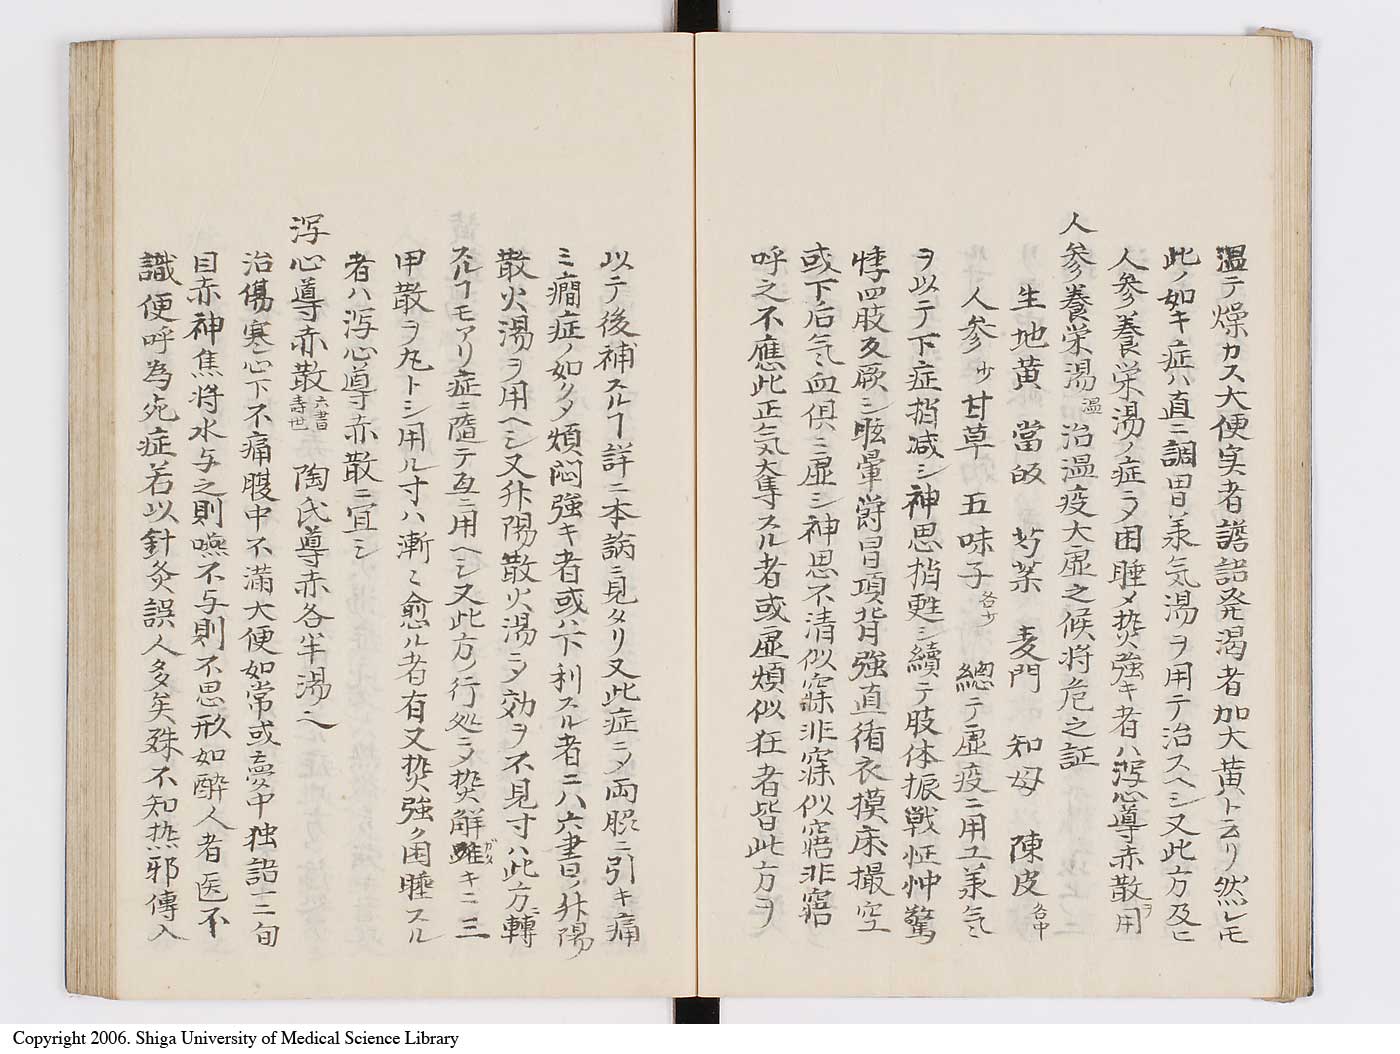 温テ燥カス大便実者譫語発渇者加大黄ト云リ然レモ
此ノ如キ症ハ直ニ調胃承気湯ヲ用テ治スヘシ又此方及ヒ
人參養栄湯ノ症ニ〆困睡〆熱強キ者ハ瀉心導赤散ヲ用
人參養栄湯 温 治温疫大虚之候将危之証
生地黄 當皈 芍薬 麦門 知母 陳皮 各中
人参 少 甘草 五味子 各少 總テ虚疫ニ用ユ承気
ヲ以テ下症稍減シ神思稍甦シ續テ肢体振戦怔忡驚
悸四肢反厥シ眩暈欝冒項背強直循衣摸床撮空
或下后気血倶ニ虚シ神思不清似寐非寐似寤非寤
呼之不應此正気大奪スル者或虚煩似狂者皆此方ヲ
以テ後補スルヿ詳ニ本論ニ見タリ又此症ニ〆両脇ニ引キ痛
ミ癇症ノ如ク〆煩悶強キ者或ハ下利スル者ニハ六書ノ升陽
散火湯ヲ用ヘシ又升陽散火湯ニ〆効ヲ不見寸ハ此方ニ轉
スルヿモアリ症ニ隨テ互ニ用ヘシ又此方ノ行処ニ〆熱解難キニ三
甲散ヲ丸トシ用ル寸ハ漸々愈ル者有又熱強ク困睡スル
者ハ瀉心導赤散ニ宜シ
瀉心導赤散 六書 壽世 陶氏導赤各半湯之
治傷寒心下不痛腹中不満大便如常或夢中独語一二旬
目赤神焦将水与之則嚥不与則不思形如酔人者医不
識便呼為死症若以針灸誤人多矣殊不知热邪傳入
Copyright 2006. Shiga University of Medical Science Library